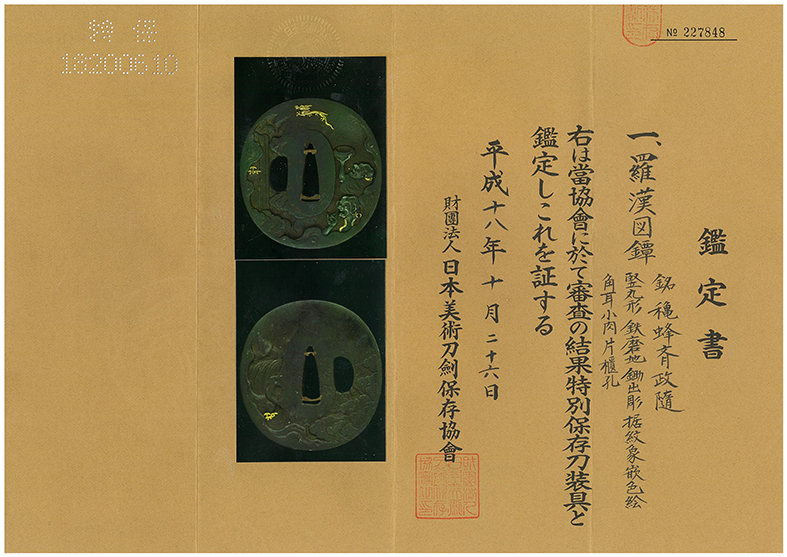 № 227848
鑑定書
一、羅漢図鐔
銘 穐蜂斉政随
竪丸形 鉄磨地 鋤出彫 据紋象嵌色絵
角耳小肉 片櫃孔
右は當協會に於て審査の結果特別保存刀装具と
鑑定しこれを証する
平成十八年十月二十六日
財團法人 日本美術刀劍保存協會
特保
18200610